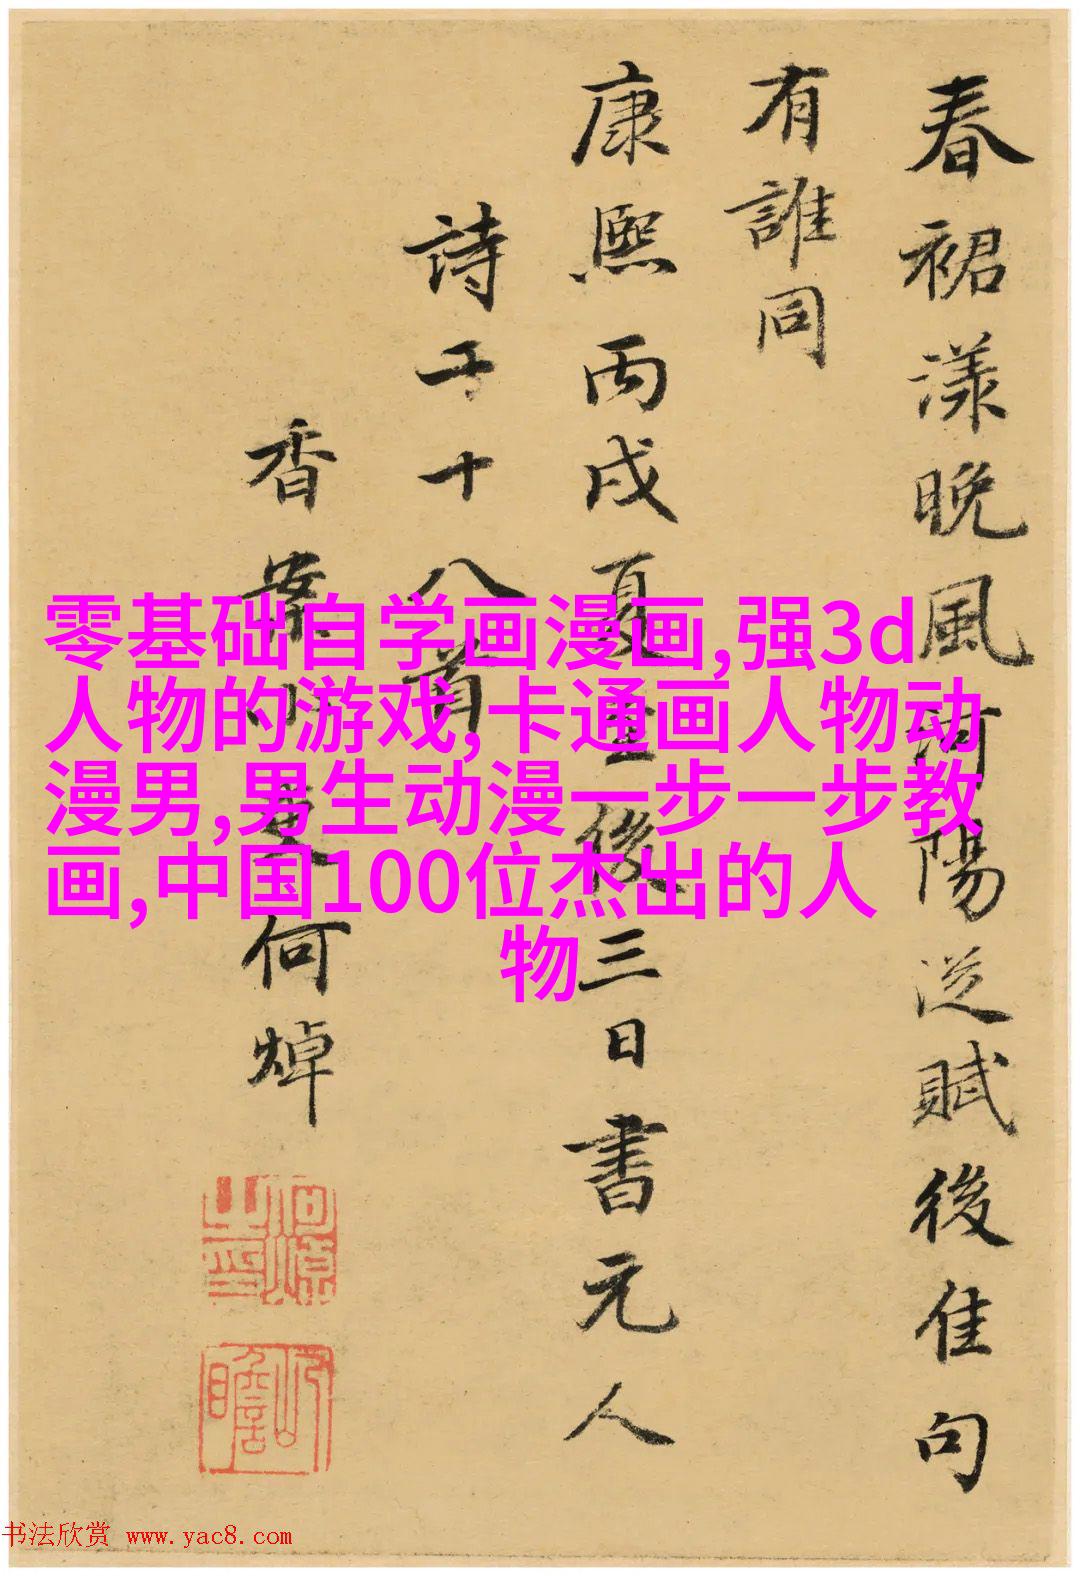 春裙漾晚風河陽從賦後佳句
有誰同
康熙丙戌夏至後三日書元人
詩于十八首
香案小吏何焯
零基础自学画漫画,强3d
人物的游戏,卡通画人物动
漫男,男生动漫一步一步教
画,中国100位杰出的人
物
书法欣赏 www.yac8.com